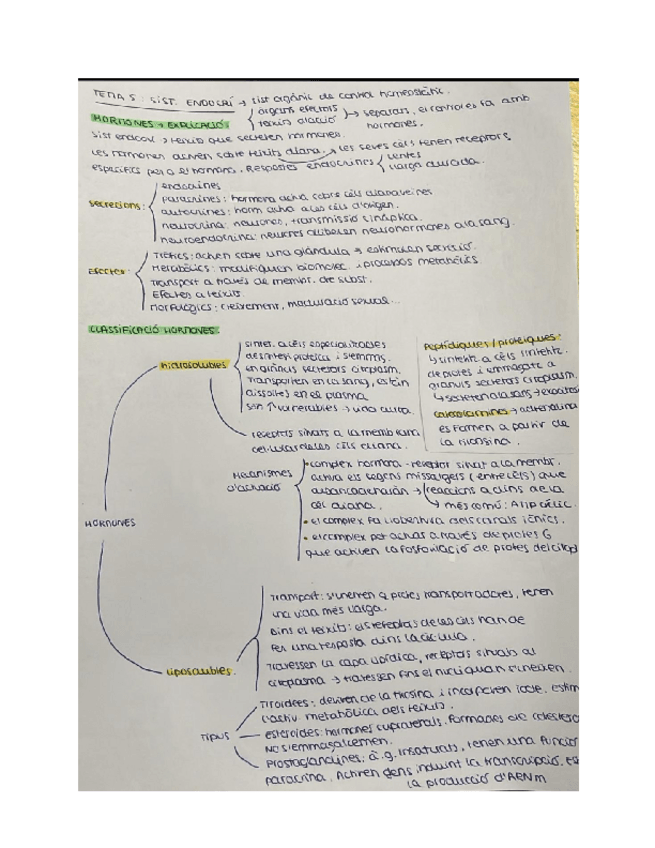 TEMA 5: SIST. ENDOCRÍ → sist orgànic de control homeostàtic.
òrgans efectors
teixits diació → separats, el control es fa amb
HORMONES → EXPLICACIÓ hormones.
Sist endocrí → teixits que secreten hormones.
Les hormones actuen sobre teixits diana. → les seves cèls tenen receptors
específics per a el hormona. Respostes endocrines lentes
llarga durada.
Secrecions: endocrines
paracrines: hormona actua sobre cèls del voltant
autocrines: horm actua a les cèls d'origen.
neurocrina: neurones, transmissió sinàptica.
neuroendocrina: neurones alliberen neurohormones a la sang.
Efectes: Tròfics: actuen sobre una glàndula → estimulen secreció.
Metabòlics: modifiquen biomolec. i processos metabòlics.
Transport a través de membr. de subst.
Efectes a teixits.
Morfològics: creixement, maduració sexual...
CLASSIFICACIÓ HORMONES:
HORMONES
hidrosolubles
sintet. a cèls especialitzades
de síntesi proteica i s'emm.
en grànuls secretors citoplasm.
Transporten en la sang, estan
dissoltes en el plasma
són ↑ vulnerables → vida curta.
receptors situats a la membrana
cel·lular de les cèls diana.
Peptídiques / proteiques:
↳ sintetitz a cèls sintetitz.
de protes i emmagatz a
grànuls secretors citoplasm.
↳ secreten a la sang → exocitosi
catecolamines → adrenalina
es formen a partir de
la tirosina.
Mecanismes
d'actuació
• complex hormona-receptor situat a la membr.
activa els segons missatgers (entre cèls) que
→ reaccions a dins de la
cèl diana. → més comú: AMP cíclic.
• el complex fa l'obertura dels canals iònics.
• el complex pot actuar a través de protes G
que activen la fosforilació de protes del citop
liposolubles.
Transport: s'uneixen a protes transportadores, tenen
una vida més llarga.
Dins el teixits: els receptors de les cèls han de
fer una resposta dins la cèl·lula.
Travessen la capa lipídica, receptors situats al
citoplasma → travessen fins el nucli quan s'uneixen.
TIPUS
Tiroidees: deriven de la tirosina i incorporen iode. estim
l'activ. metabòlica dels teixits.
esteroides: hormones suprarenals. Formades de colestero
No s'emmagatzemen.
Prostaglandines: à.g. insaturats, tenen una funció
paracrina. Activen gens, induint la transcripció, es
la producció d'ARNm